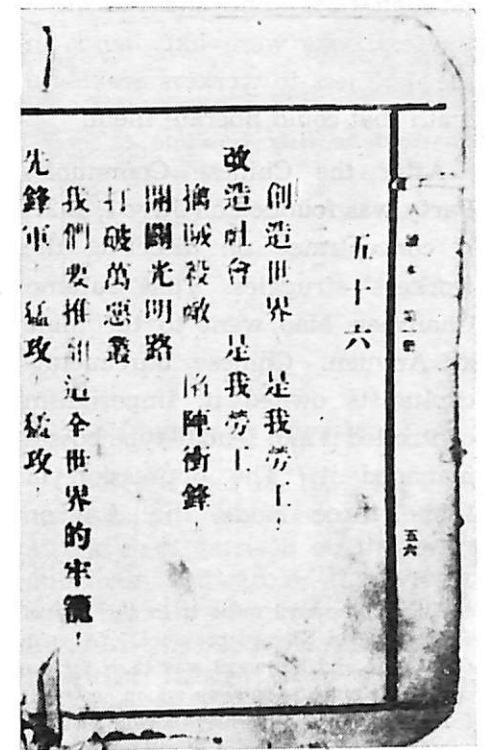 讀本
五六
五十六
創造世界 是我勞工,
改造社會 是我勞工
擒賊殺敵 陷陣衝鋒,
開闢光明路
打破萬惡叢
我們要推翻全世界的牢籠,
先鋒軍 猛攻 猛攻